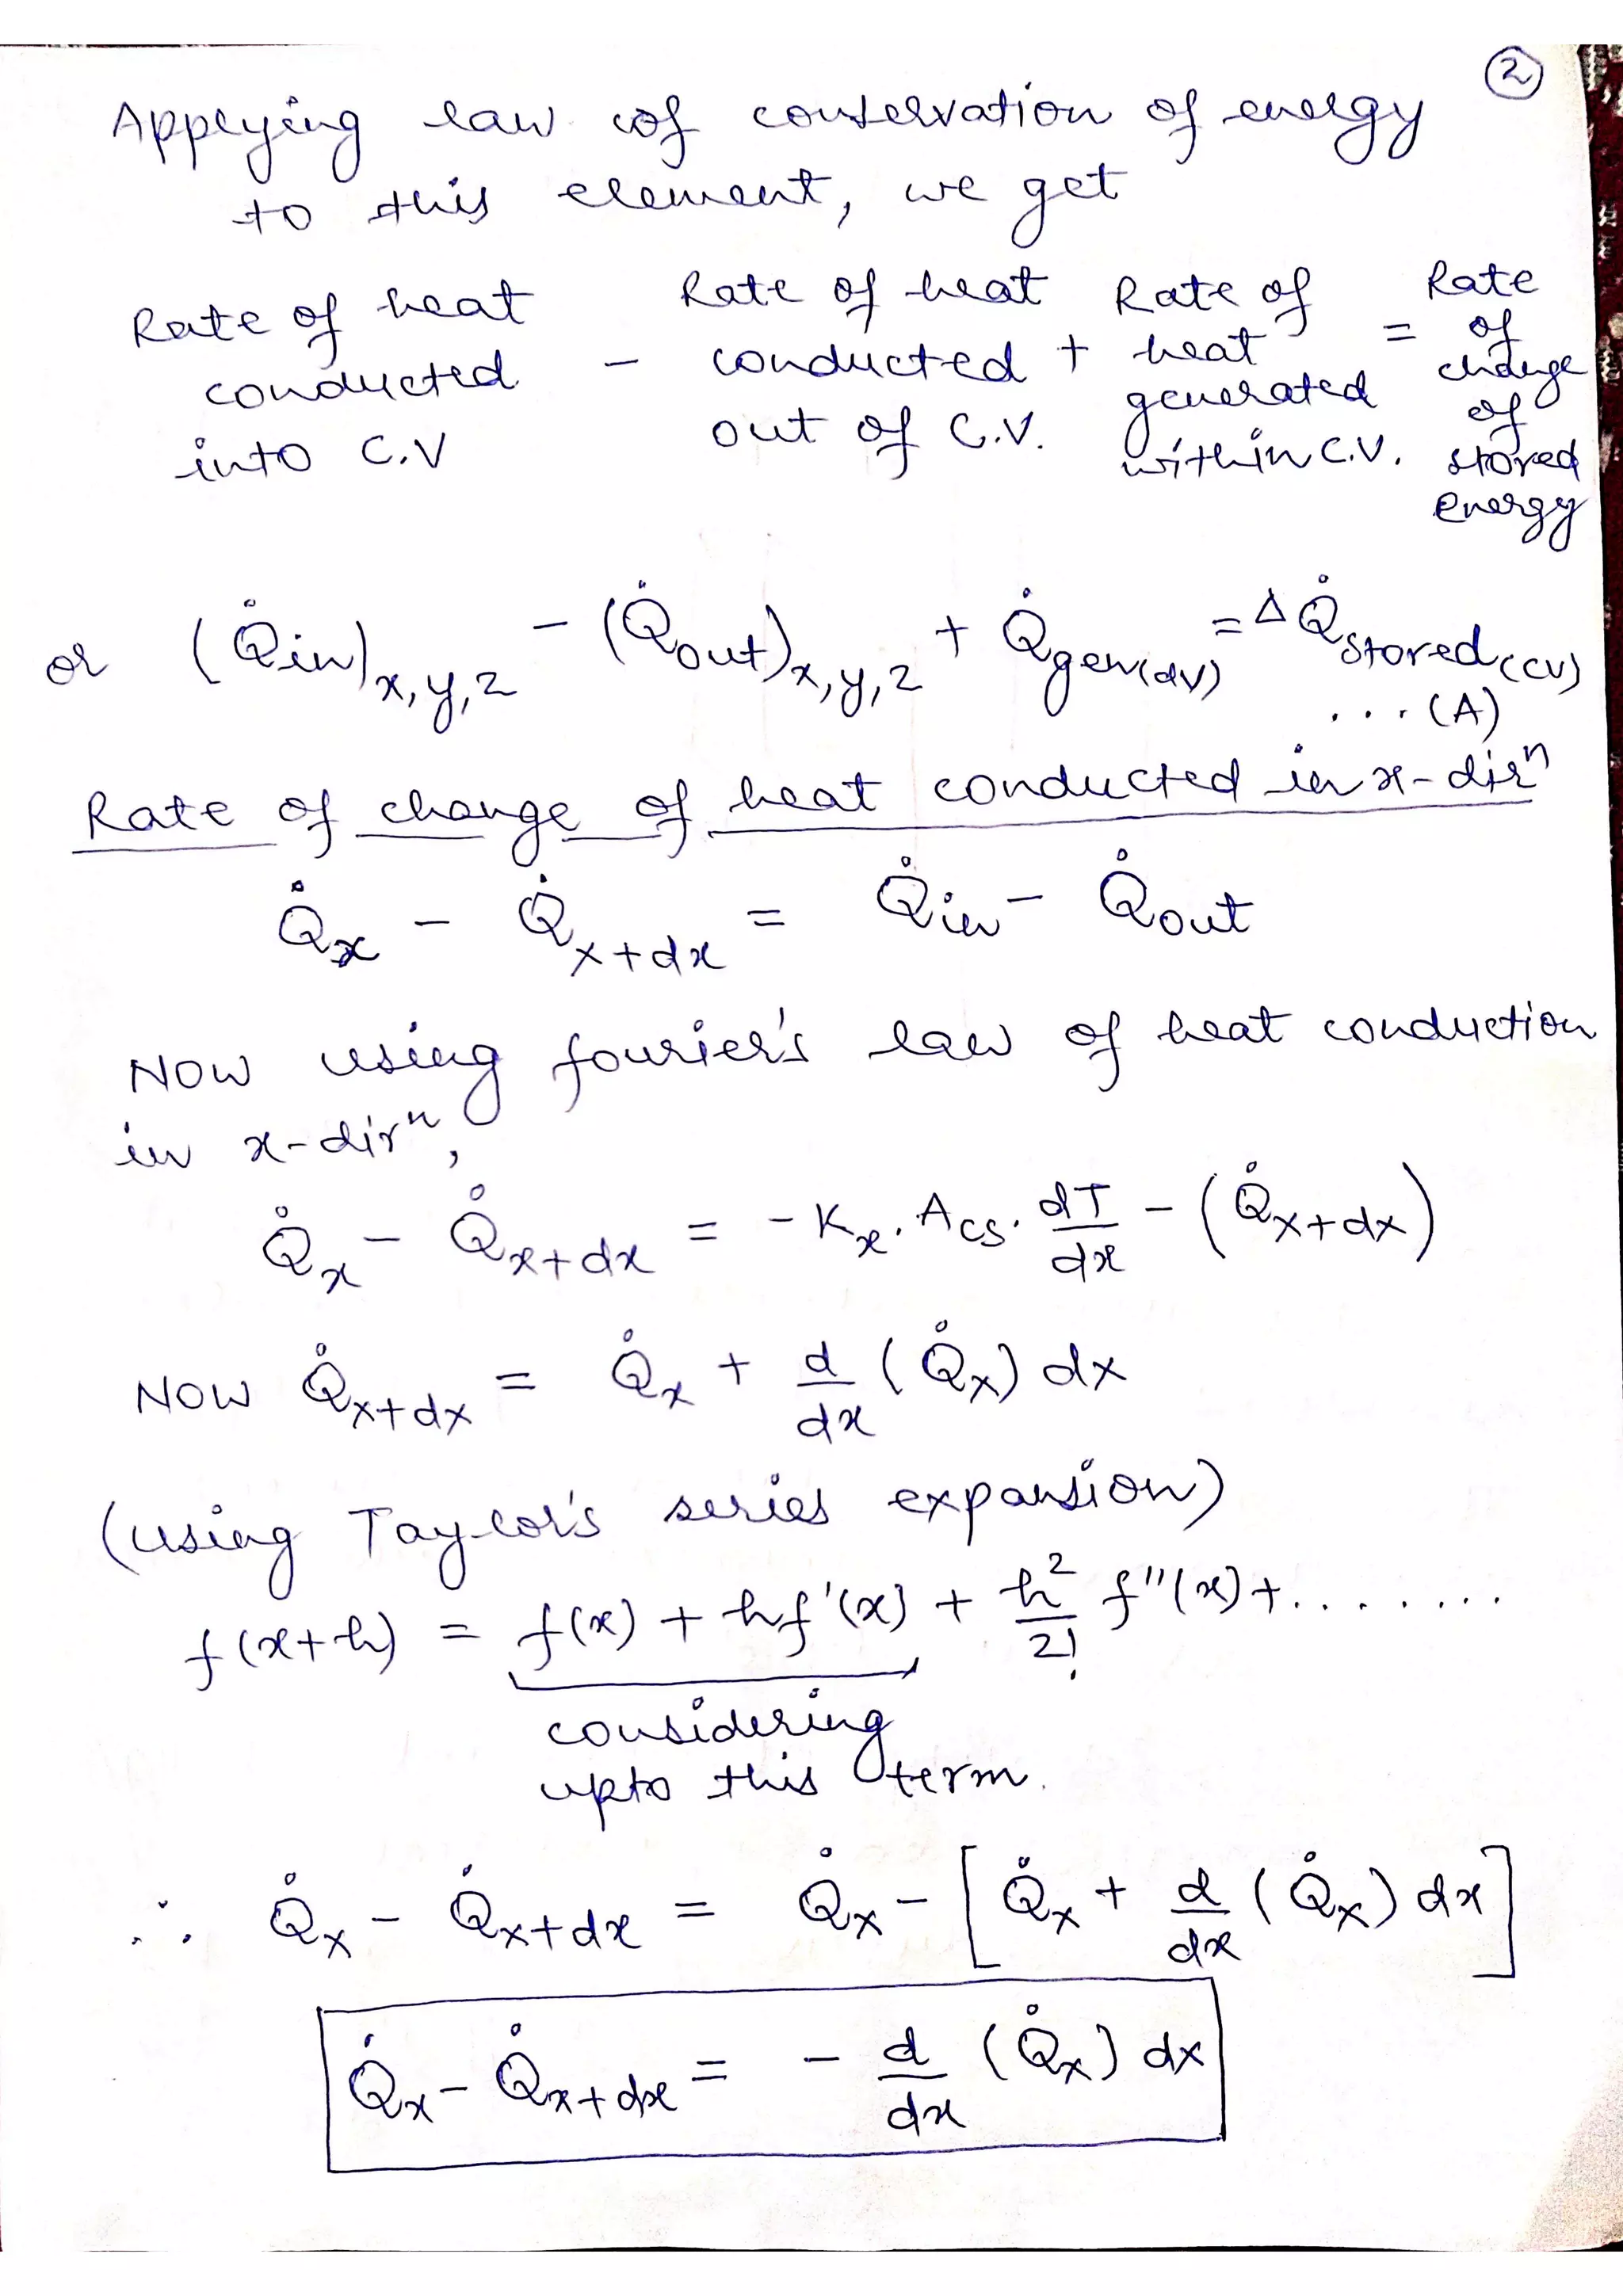 2
Applying law of conservation of energy
to this element, we get
Rate of heat conducted into C.V - Rate of heat conducted out of C.V. + Rate of heat generated within C.V. = Rate of change of stored energy
or (Q̇in)x,y,z - (Q̇out)x,y,z + Q̇gen(dv) = ΔQ̇stored(CV)
...(A)
Rate of change of heat conducted in x-dirⁿ
Q̇x - Q̇x+dx = Q̇in - Q̇out
Now using fourier's law of heat conduction
in x-dirⁿ,
Q̇x - Q̇x+dx = -Kx. Acs. dT/dx - (Q̇x+dx)
Now Q̇x+dx = Q̇x + d/dx (Q̇x) dx
(using Taylor's series expansion)
f(x+h) = f(x) + hf'(x) + h²/2! f''(x)+........
considering
upto this term.
∴ Q̇x - Q̇x+dx = Q̇x - [Q̇x + d/dx (Q̇x) dx]
Q̇x - Q̇x+dx = - d/dx (Q̇x) dx